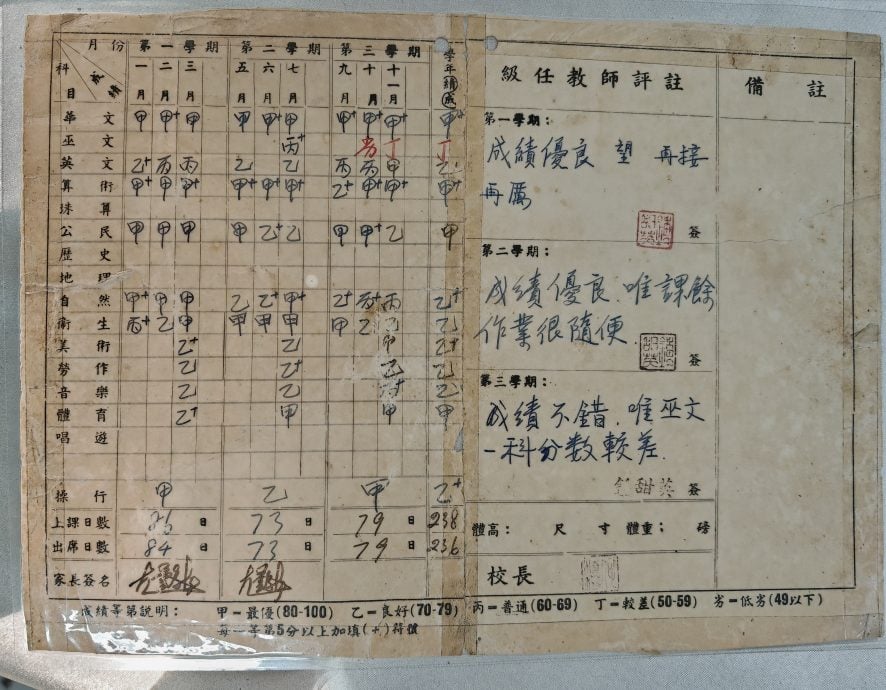 月份 第一學期 第二學期 第三學期 學年成績
科目 成績 一月 二月 三月 五月 六月 七月 九月 十月 十一月
華文 甲 甲+ 甲 甲 甲 甲 甲+ 甲+ 甲 甲+
巫文 丙+ 劣 丁 丁
英文 乙+ 丙 丙 乙 乙 丙 丙 甲 乙
算術 甲+ 甲 甲+ 甲+ 甲+ 甲+ 乙+ 甲+ 甲+ 甲+
珠算
公民 甲 甲 甲 甲 乙+ 乙 甲 甲+ 乙 甲
歷史
地理
自然 甲 甲+ 甲 乙 乙+ 甲+ 乙+ 丙 乙+
衛生 丙+ 乙 甲 甲 甲 甲 甲 乙 乙
美術 乙+ 乙 甲 乙+
勞作 乙 乙+ 乙 乙
音樂 乙 乙 乙
體育 乙+ 甲 甲 甲
唱遊
操行 甲 乙 甲 乙+
上課日數 86 日 73 日 79 日 238
出席日數 84 日 73 日 79 日 236
家長簽名
成績等第說明： 甲－最優(80-100) 乙－良好(70-79) 丙－普通(60-69) 丁－較差(50-59) 劣－低劣(49以下)
每一等第5分以上加填(+)符號
級任教師評註
第一學期：
成績優良 望 再接
再厲
簽
第二學期：
成績優良，唯課餘
作業很隨便
簽
第三學期：
成績不錯，唯巫文
一科分数較差.
甜英 簽
體高： 尺 寸 體重； 磅
校長
備註